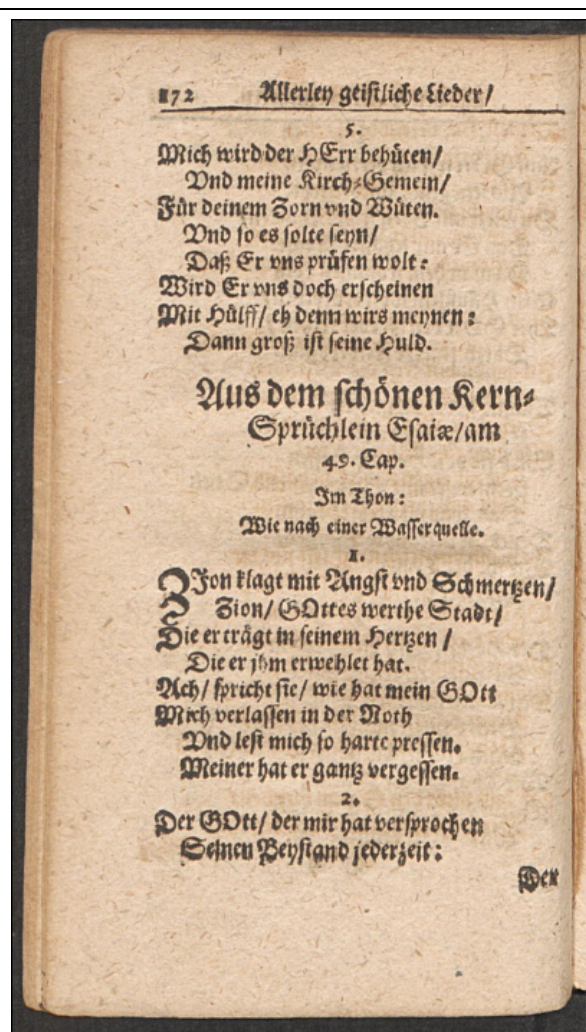 172 Allerley geistliche Lieder/
5.
Mich wird der HErr behüten/
Vnd meine Kirch-Gemein/
Für deinem Zorn vnd Wüten.
Vnd so es solte seyn/
Daß Er vns prüfen wolt:
Wird Er vns doch erscheinen
Mit Hülff/ eh denn wirs meynen:
Dann groß ist seine Huld.
Aus dem schönen Kern-
Sprüchlein Esaiæ/am
49. Cap.
Im Thon:
Wie nach einer Wasserquelle.
1.
ZJon klagt mit Angst vnd Schmertzen/
Zion/ GOttes werthe Stadt/
Die er trägt in seinem Hertzen/
Die er jhm erwehlet hat.
Ach/ spricht sie/ wie hat mein GOtt
Mich verlassen in der Noth
Vnd lest mich so harte pressen.
Meiner hat er gantz vergessen.
2.
Der GOtt/ der mir hat versprochen
Seinen Beystand jederzeit:
Der